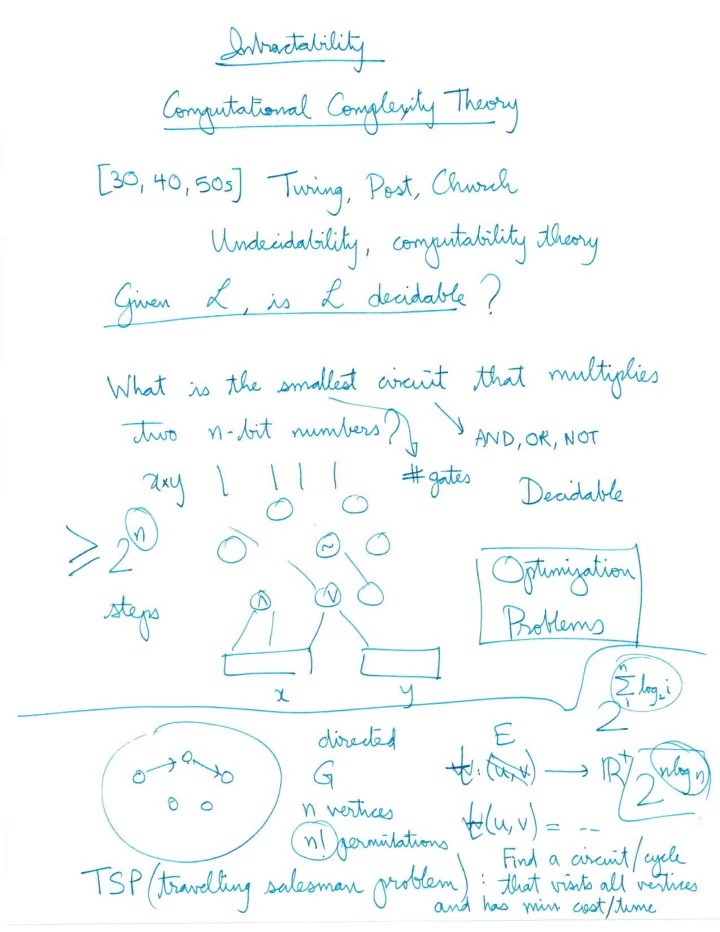 Intractability
Computational Complexity Theory
[30, 40, 50s] Turing, Post, Church
Undecidability, computability theory
Given L, is L decidable?
What is the smallest circuit that multiplies
two n-bit numbers?
AND, OR, NOT
# gates
Decidable
x*y
≥ 2^n
steps
~
∧
∨
x
y
Optimization
Problems
2^{∑_i^n log₂ i}
2^{n log n}
directed
G
n vertices
n! permutations
E
t: (u,v) → ℝ⁺
t(u,v) = ...
TSP (travelling salesman problem) :
Find a circuit/cycle
that visits all vertices
and has min cost/time